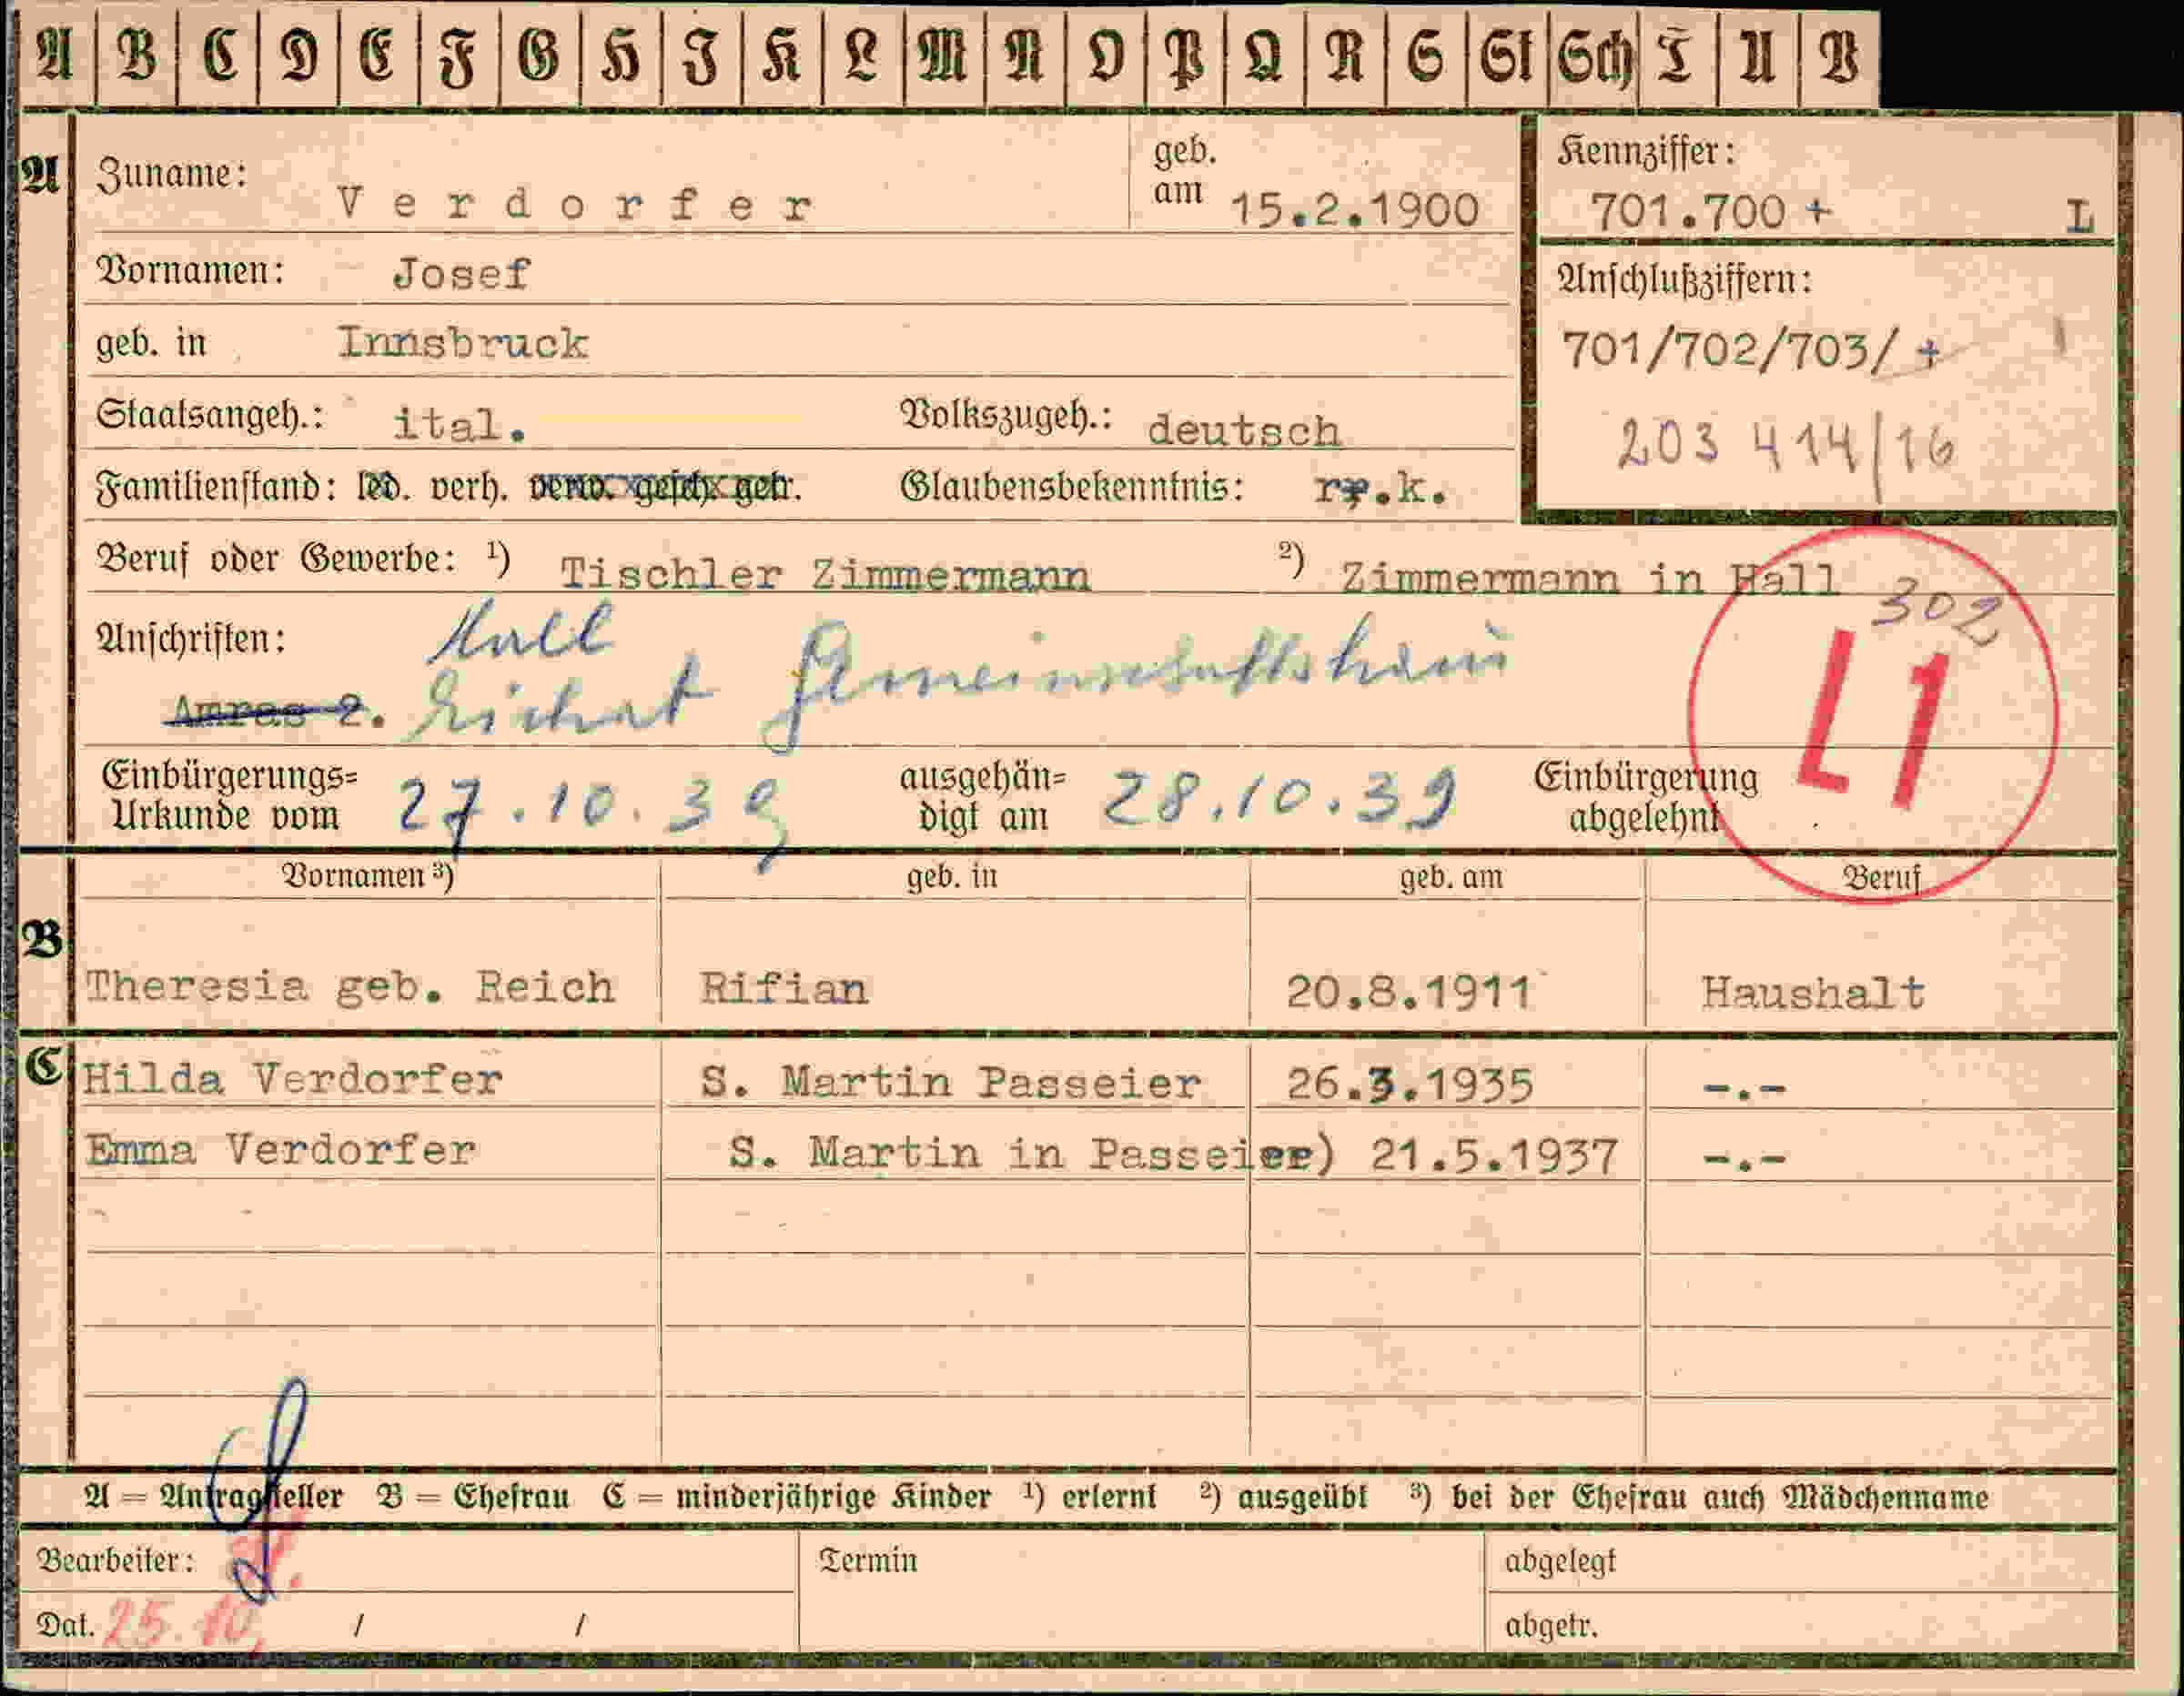 A B C D E F G H I K L M N O P Q R S St Sch T U V
A Zuname: Verdorfer geb. am 15.2.1900
Kennziffer: 701.700 + L
Vornamen: Josef
Anschlußziffern:
geb. in Innsbruck
701/702/703/ +
Staatsangeh.: ital. Volkszugeh.: deutsch
203 414/16
Familienstand: led. verh. verw. gesch. getr. Glaubensbekenntnis: r.k.
Beruf oder Gewerbe: ¹) Tischler Zimmermann ²) Zimmermann in Hall
302
Anschriften: Hall
Amras 2. Gemeinschaftshaus
L1
Einbürgerungs=
Urkunde vom 27.10.39 ausgehän=
digt am 28.10.39 Einbürgerung
abgelehnt
Vornamen ³) geb. in geb. am Beruf
B Theresia geb. Reich Rifian 20.8.1911 Haushalt
C Hilda Verdorfer S. Martin Passeier 26.3.1935 -.-
Emma Verdorfer S. Martin in Passeier) 21.5.1937 -.-
A = Antragsteller B = Ehefrau C = minderjährige Kinder ¹) erlernt ²) ausgeübt ³) bei der Ehefrau auch Mädchenname
Bearbeiter: Termin abgelegt
Dat. 25.10. / / abgetr.